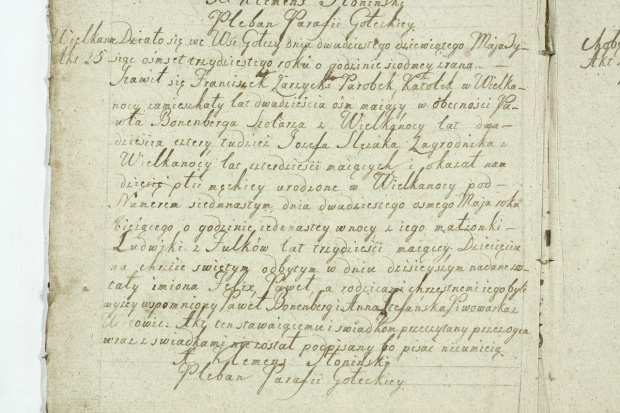 X. Klemens Słoninski
Pleban Parafii Gołeckiey
Wielkanoc Działo się we Wsi Gołczy dnia dwudziestego dziewiątego Maja Ty-
Akt 25 siąc ośmset trzydziestego roku o godzinie siodmey zrana
Stawił się Franciszek Zarzycki Parobek Katolik w Wielka-
nocy zamieszkały lat dwadzieścia ośm maiący w obecności Pa-
wła Bonenberga Stolarza z Wielkanocy lat dwa-
dzieścia cztery tudzież Jozefa Slęzaka Zagrodnika z
Wielkanocy lat czterdzieści maiących i okazał nam
dziecię płci męskiey urodzone w Wielkanocy pod
Numerem siedmnastym dnia dwudziestego osmego Maja roku
bieżącego o godzinie iedenastey w nocy z iego małżonki
Ludwiki z Fulków lat trzydzieści maiącey Dziecięciu
na chrzcie swiętym odbytym w dniu dzisieyszym nadane zo-
stały imiona Felix Paweł, a rodzicami chrzestnemi iego byli
wyżey wspomniony Paweł Bonenberg i Anna Stefańska Piwowarka z
Akt ten stawaiącemu i swiadkom przeczytany przez oyca
wraz z swiadkami nie został podpisany bo pisać nieumieią
X. Klemens Słoninski
Pleban Parafii Gołeckiey
Akt